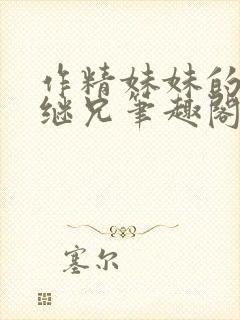 作精妹妹的
继兄笔趣阁
塞尔